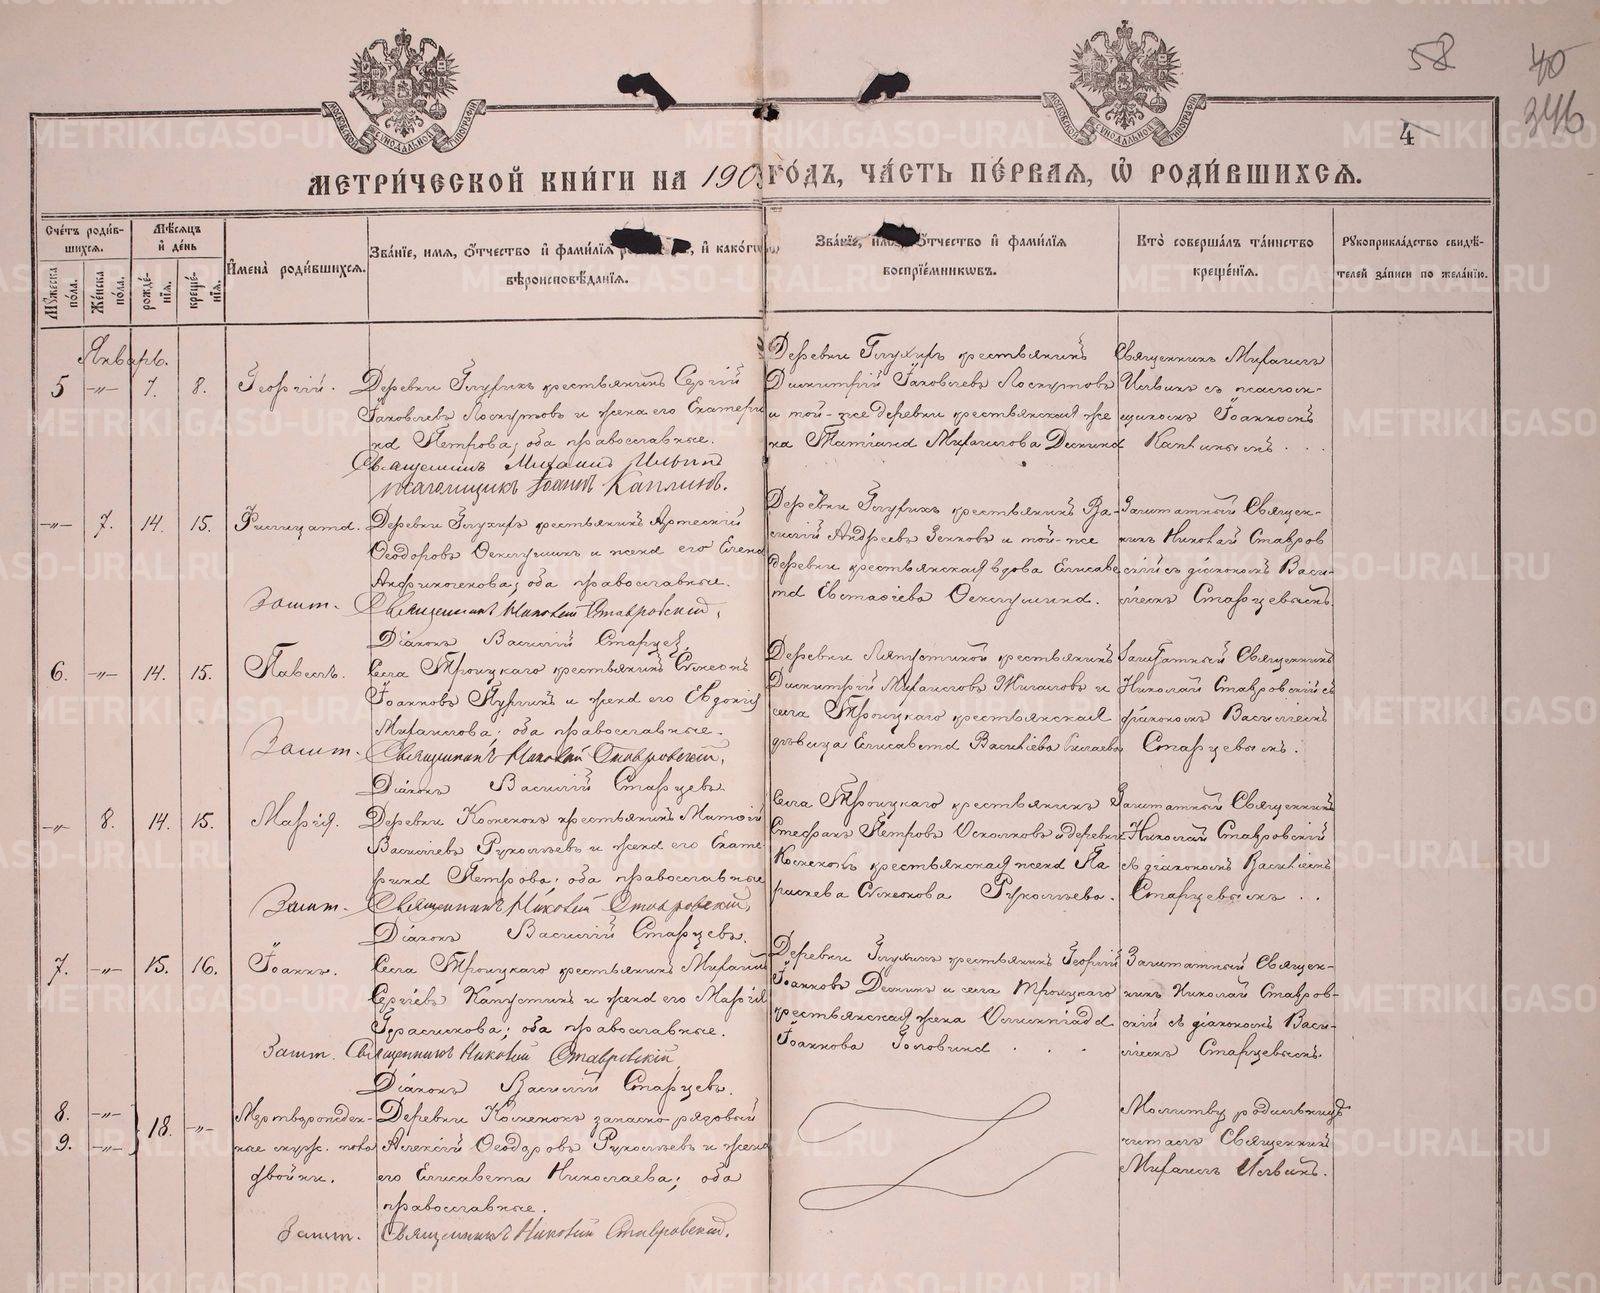 58
40
346
4
МОСКОВСКОЙ СѴНОДАЛЬНОЙ ТИПОГРАФІИ
МОСКОВСКОЙ СѴНОДАЛЬНОЙ ТИПОГРАФІИ
МЕТРИ́ЧЕСКОЙ КНИ́ГИ НА 190 ГО́ДЪ, ЧА́СТЬ ПЕ́РВАЯ, Ѡ РОДИ́ВШИХСЯ.
Сче́тъ роди́в-
шихся.
Мꙋ́жеска по́ла.
Же́нска по́ла.
Мѣ́сяцъ
и҆ де́нь
рожде́-
нія.
креще́-
нія.
И҆мена̀ роди́вшихся.
Зва́ніе, имя, ѻ҆́тчество и҆ фами́лїя , и҆ како́гѡ
вѣроисповѣ́данїя.
Зва́нїе, ѻ҆́тчество и҆ фами́лїя
воспрїе́мниковъ.
Кто̀ соверша́лъ та́инство
креще́нїя.
Рꙋкоприкла́дство свидѣ́-
телей за́писи по жела́нїю.
Январь.
5 —„— 7. 8. Георгій.
Деревни Глухихъ крестьянинъ Сергій
Іаковлевъ Лоскутовъ и жена его Екатери
на Петрова; оба православные.
Священникъ Михаилъ Ильинъ
псаломщикъ Іоаннъ Каплинъ.
Деревни Глухихъ крестьянинъ
Димитрій Іаковлевъ Лоскутовъ
и той-же деревни крестьянская же
на Татіана Михаилова Демина
Священникъ Михаилъ
Ильинъ съ псалом-
щикомъ Іоанномъ
Каплинымъ . . .
—„— 7. 14. 15.
Деревни Глухихъ крестьянинъ Артемій
Ѳеодоровъ и жена его Елена
оба православные.
Зашт. Священникъ Николай Ставровскій,
Діаконъ Василій Старцевъ.
Деревни Глухихъ крестьянинъ Ва-
силій Андреевъ Зенковъ и той-же
деревни крестьянская вдова Елисаве
та Евстафіева .
Заштатный Священ-
никъ Николай Ставров
скій съ діакономъ Васи-
ліемъ Старцевымъ.
6. —„— 14. 15. Павелъ.
Села Троицкаго крестьянинъ Симеонъ
Іоанновъ и жена его Евдокія
Михаилова; оба православные.
Зашт. Священникъ Николай Ставровскій,
Діаконъ Василій Старцевъ.
Деревни крестьянинъ
Димитрій Михаиловъ Жигаловъ и
села Троицкаго крестьянская
дѣвица Елисавета Василіева
Заштатный Священникъ
Николай Ставровскій съ
діакономъ Василіемъ
Старцевымъ.
—„— 8. 14. 15. Марія.
Деревни крестьянинъ
Василіевъ и жена его Екате
рина Петрова; оба православные
Зашт. Священникъ Николай Ставровскій,
Діаконъ Василій Старцевъ.
Села Троицкаго крестьянинъ
Стефанъ Петровъ Осколковъ и деревни
крестьянская жена Па
раскева Симеонова .
Заштатный Священникъ
Николай Ставровскій
съ діакономъ Василіемъ
Старцевымъ . .
7. —„— 15. 16. Іоаннъ.
Села Троицкаго крестьянинъ Михаилъ
Сергіевъ Капустинъ и жена его Марія
Герасимова; оба православные.
Зашт. Священникъ Николай Ставровскій
Діаконъ Василій Старцевъ.
Деревни Глухихъ крестьянинъ Георгій
Іоанновъ Деминъ и села Троицкаго
крестьянская жена Олимпіада
Іоаннова Головина . . .
Заштатный Священ-
никъ Николай Ставров-
скій съ діакономъ Васи-
ліемъ Старцевымъ.
8. —„—
9. —„— 18. —„—
Мертворожден-
ные муж. пола
двойни.
Деревни запасно-рядовый
Алексій Ѳеодоровъ и жена
его Елисавета Николаева; оба
православные.
Зашт. Священникъ Николай Ставровскій.
Молитву родильницѣ
читалъ Священникъ
Михаилъ Ильинъ.
METRIKI.GASO-URAL.RU